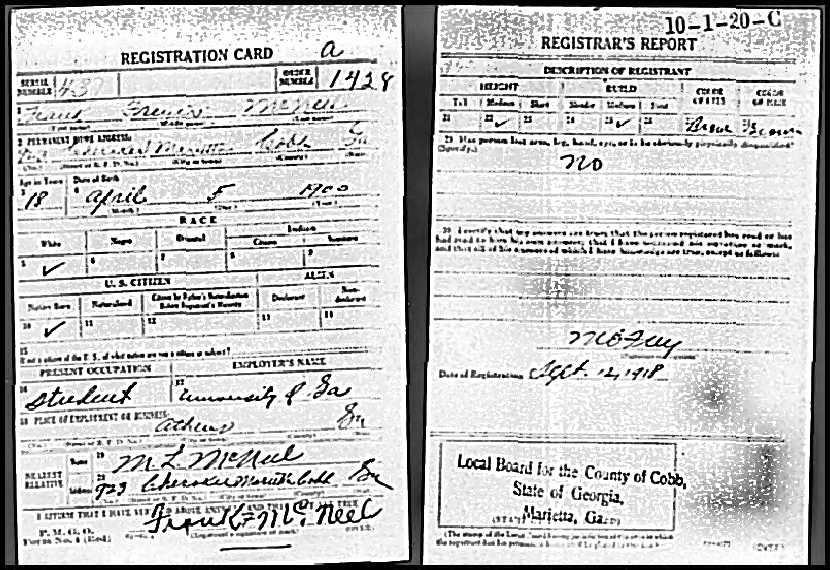 REGISTRATION CARD a
SERIAL NUMBER 437
ORDER NUMBER 1428
Frank McNeel
2 PERMANENT HOME ADDRESS:
Cherokee Marietta Cobb Ga
Age in Years Date of Birth
18 April 5 1900
RACE
White Negro Oriental Indian
Citizen
5 ✓ 6 7 8 9
U. S. CITIZEN ALIEN
Native Born Naturalized Citizen by Father's Naturalization Before Registrant's Majority Declarant Non-declarant
10 ✓ 11 12 13 14
15
If not a citizen of the U. S., of what nation are you a citizen or subject?
PRESENT OCCUPATION EMPLOYER'S NAME
16 Student 17 University of Ga
18 PLACE OF EMPLOYMENT OR BUSINESS:
Athens Ga
NEAREST RELATIVE
Name 19 M L McNeel
Address 20 923 Cherokee Marietta Cobb Ga
I AFFIRM THAT I HAVE VERIFIED ABOVE ANSWERS AND THAT THEY ARE TRUE
P. M. G. O.
Form No. 1 (Red)
Frank McNeel
10-1-20-C
REGISTRAR'S REPORT
DESCRIPTION OF REGISTRANT
HEIGHT BUILD COLOR OF EYES COLOR OF HAIR
Tall Medium Short Slender Medium Stout
21 22 ✓ 23 24 25 ✓ 26 27 Brown 28 Brown
29 Has person lost arm, leg, hand, eye, or is he obviously physically disqualified?
(Specify.)
No
30 I certify that my answers are true; that the person registered has read or has
had read to him his own answers; that I have witnessed his signature or mark,
and that all of his answers of which I have knowledge are true, except as follows:
Date of Registration Sept. 12, 1918
Local Board for the County of Cobb,
State of Georgia,
Marietta, Ga.